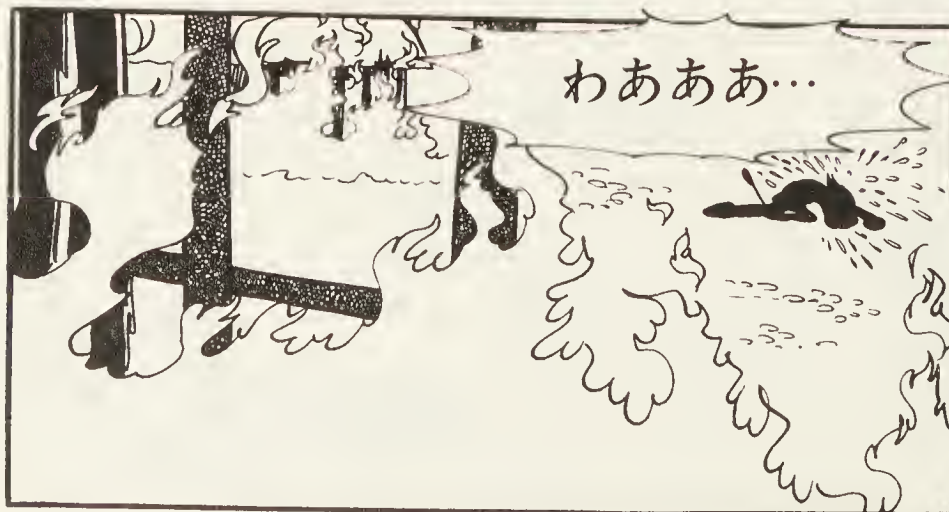 わあああ…